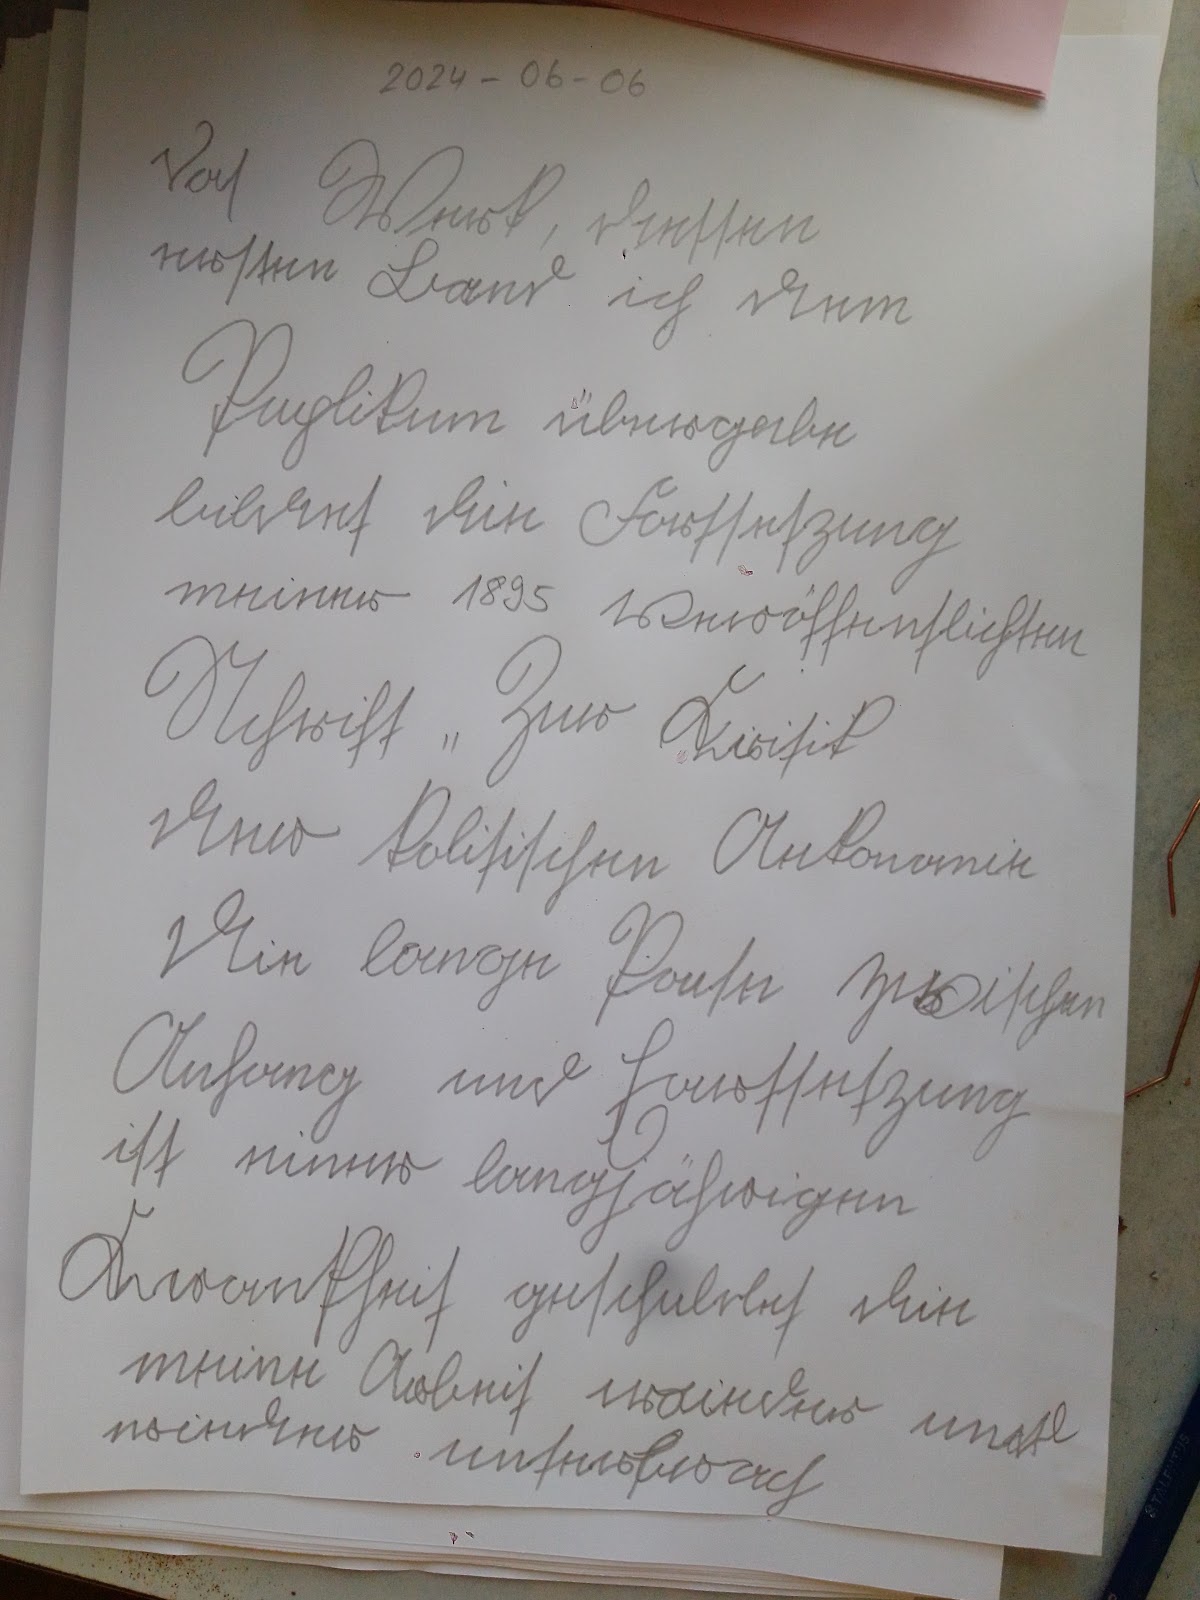 2024-06-06
Das Werk, dessen
ersten Band ich dem
Puplikum übergebe
bildet die Fortsetzung
meiner 1895 veröffentlichten
Schrift „Zur Kritik
der politischen Aekonomie
Die lange Pause zwischen
Anfang und Fortsetzung
ist einer langjährigen
Krankheit geschuldet die
meine Arbeit wieder und
wieder unterbrach